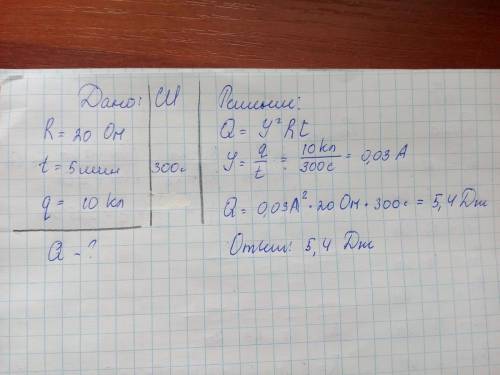 Дано: СИ
R = 20 Ом
t = 5 мин 300с
q = 10 Кл
Q - ?
Решение:
Q = I²Rt
I = q/t = 10 Кл/300с = 0,03 А
Q = 0,03А² · 20 Ом · 300с = 5,4 Дж
Ответ: 5,4 Дж